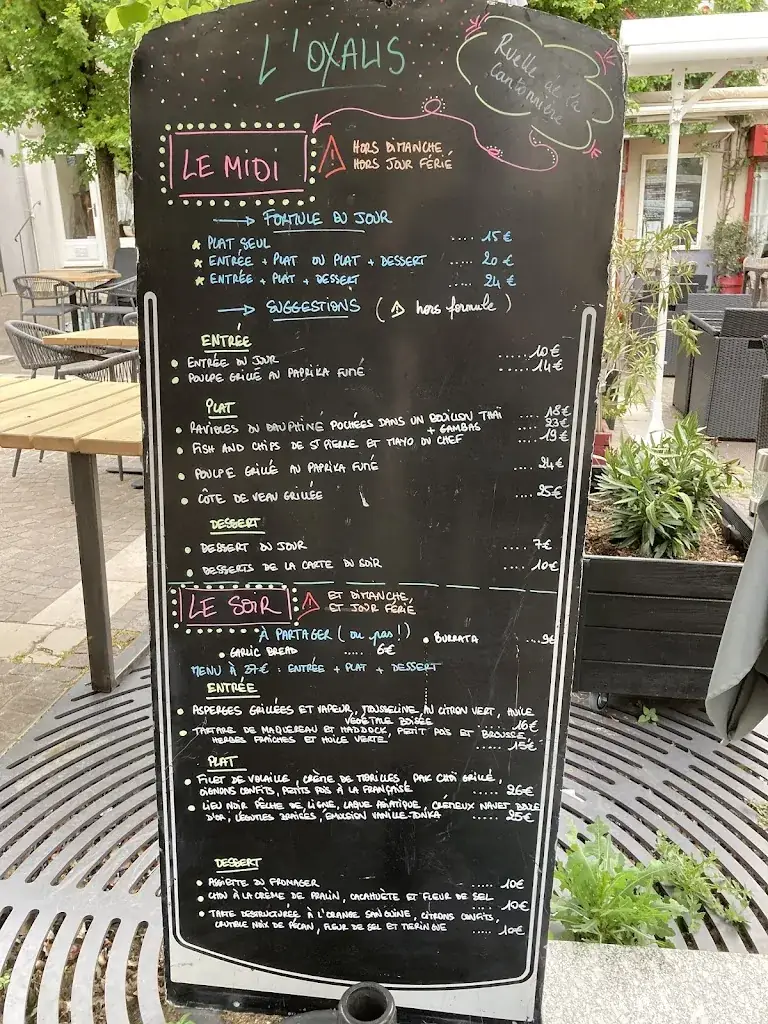 L'OXALIS
Ruelle de la
Cantonnière
LE MIDI
HORS DIMANCHE
HORS JOUR FÉRIÉ
FORMULE DU JOUR
PLAT SEUL ..... 15€
ENTRÉE + PLAT OU PLAT + DESSERT .... 20€
ENTRÉE + PLAT + DESSERT .... 24€
SUGGESTIONS ( hors formule )
ENTRÉE
ENTRÉE DU JOUR ..... 10€
POULPE GRILLÉ AU PAPRIKA FUMÉ ..... 14€
PLAT
RAVIOLES DU DAUPHINÉ POCHÉES DANS UN BOUILLON THAÏ .... 18€
+ GAMBAS .... 23€
FISH AND CHIPS DE ST PIERRE ET MAYO DU CHEF .... 19€
POULPE GRILLÉ AU PAPRIKA FUMÉ .... 24€
CÔTE DE VEAU GRILLÉE .... 25€
DESSERT
DESSERT DU JOUR .... 7€
DESSERTS DE LA CARTE DU SOIR .... 10€
LE SOIR
ET DIMANCHE,
ET JOUR FÉRIÉ
À PARTAGER ( ou pas! )
BURRATA ...9€
GARLIC BREAD ..... 6€
MENU À 37€ : ENTRÉE + PLAT + DESSERT
ENTRÉE
ASPERGES GRILLÉES ET VAPEUR, MOUSSELINE AU CITRON VERT, HUILE
VÉGÉTALE BOISÉE ..... 16€
TARTARE DE MAQUEREAU ET HADDOCK, PETIT POIS ET BROUSSE,
HERBES FRAÎCHES ET HUILE VERTE ..... 15€
PLAT
FILET DE VOLAILLE, CRÈME DE MORILLES, PAK CHOÏ GRILLÉ,
OIGNONS CONFITS, PETITS POIS À LA FRANÇAISE ..... 26€
LIEU NOIR PÊCHE DE LIGNE, LAQUE ASIATIQUE, CRÉMEUX NAVET BOULE
D'OR, LÉGUMES BRAISÉS, EMULSION VANILLE-TONKA ..... 25€
DESSERT
ASSIETTE DU FROMAGER ..... 10€
CHOU À LA CRÈME DE PRALIN, CACAHUÈTE ET FLEUR DE SEL ..... 10€
TARTE DESTRUCTURÉE À L'ORANGE SANGUINE, CITRONS CONFITS,
CRUMBLE NOIX DE PÉCAN, FLEUR DE SEL ET MERINGUE ..... 10€